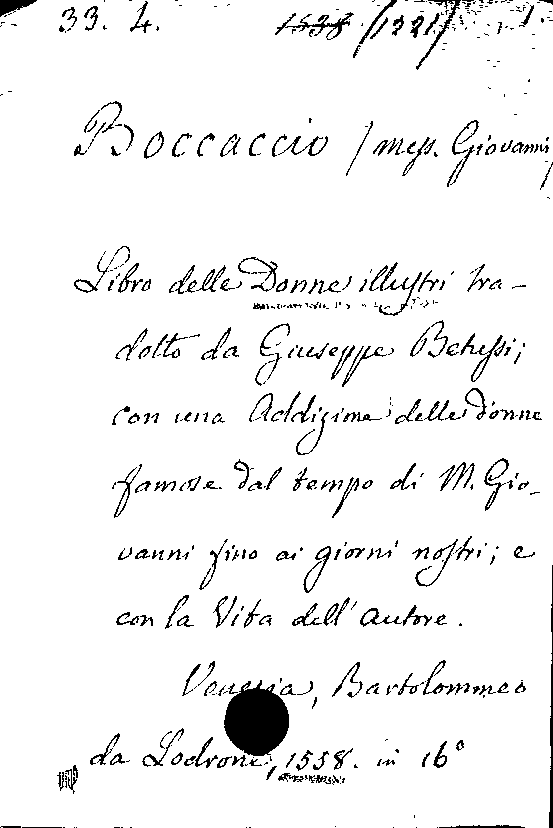 33. 4. 1538 /1221/ 1.
Boccaccio / mess. Giovanni /
Libro delle Donne illustri tra-
dotto da Giuseppe Betussi;
con una Addizione delle donne
famose dal tempo di M. Gio-
vanni fino ai giorni nostri; e
con la Vita dell' autore.
Venezia, Bartolommeo
da Lodrone, 1558. in 16°